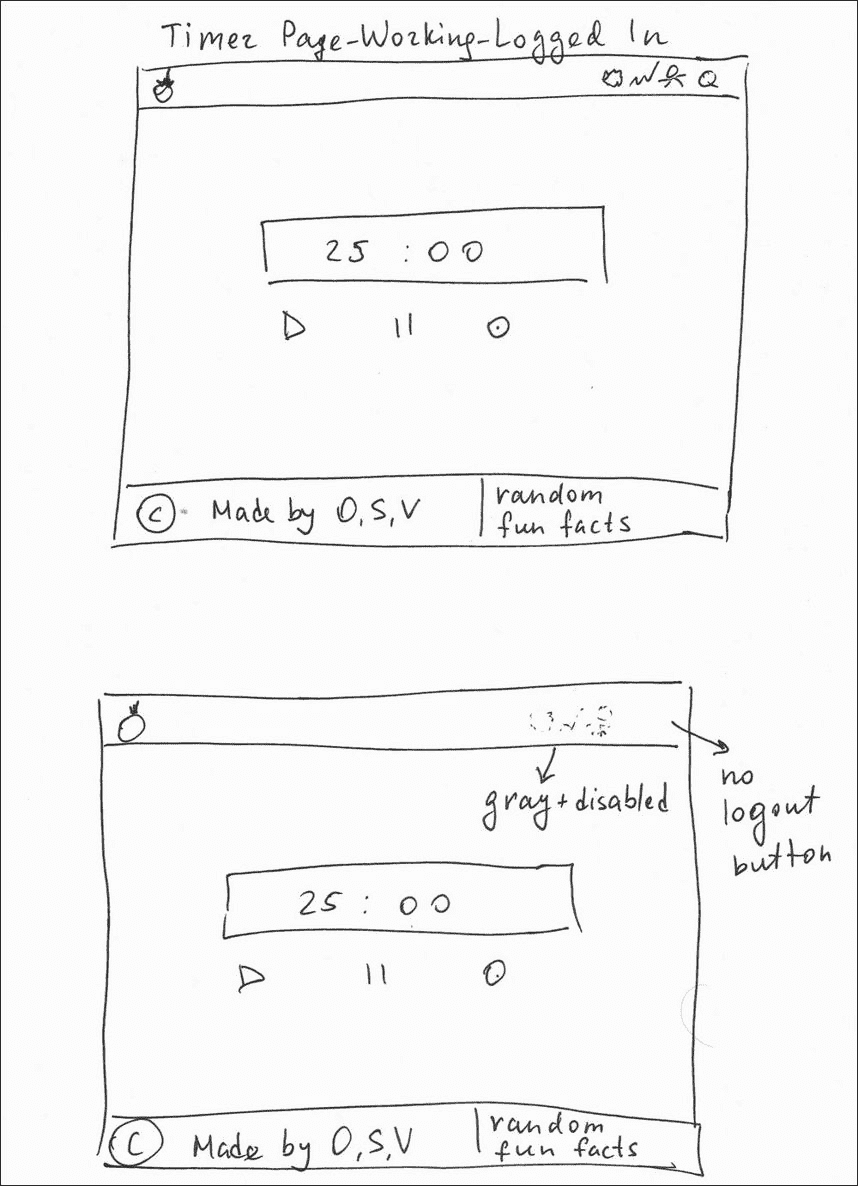 Timer Page-Working-Logged In
25 : 00
© Made by O,S,V
random
fun facts
gray+disabled
no
logout
button
25 : 00
© Made by O,S,V
random
fun facts